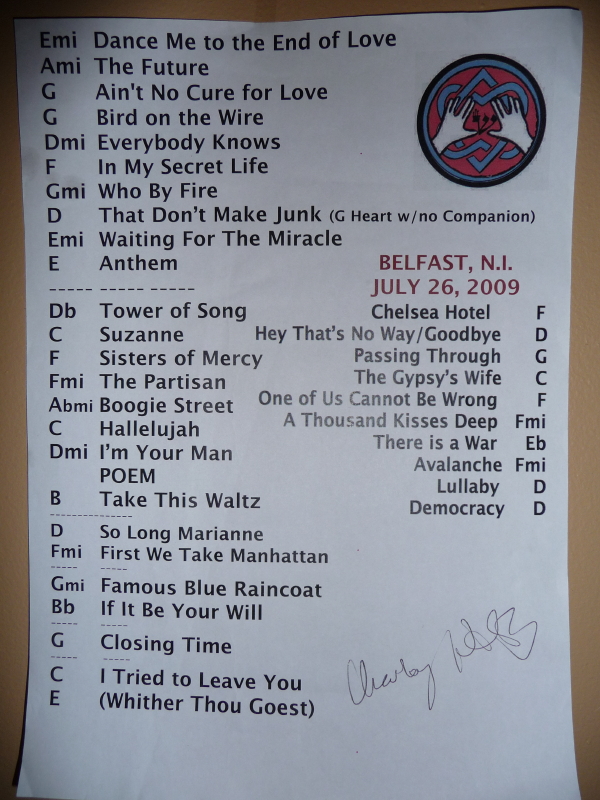 Emi Dance Me to the End of Love
Ami The Future
G Ain't No Cure for Love
G Bird on the Wire
Dmi Everybody Knows
F In My Secret Life
Gmi Who By Fire
D That Don't Make Junk (G Heart w/no Companion)
Emi Waiting For The Miracle
E Anthem
----- ----- -----
Db Tower of Song
C Suzanne
F Sisters of Mercy
Fmi The Partisan
Abmi Boogie Street
C Hallelujah
Dmi I'm Your Man
POEM
B Take This Waltz
----------------
D So Long Marianne
Fmi First We Take Manhattan
----- -----
Gmi Famous Blue Raincoat
Bb If It Be Your Will
----- -----
G Closing Time
----- -----
C I Tried to Leave You
E (Whither Thou Goest)
BELFAST, N.I.
JULY 26, 2009
Chelsea Hotel F
Hey That's No Way/Goodbye D
Passing Through G
The Gypsy's Wife C
One of Us Cannot Be Wrong F
A Thousand Kisses Deep Fmi
There is a War Eb
Avalanche Fmi
Lullaby D
Democracy D
Charley